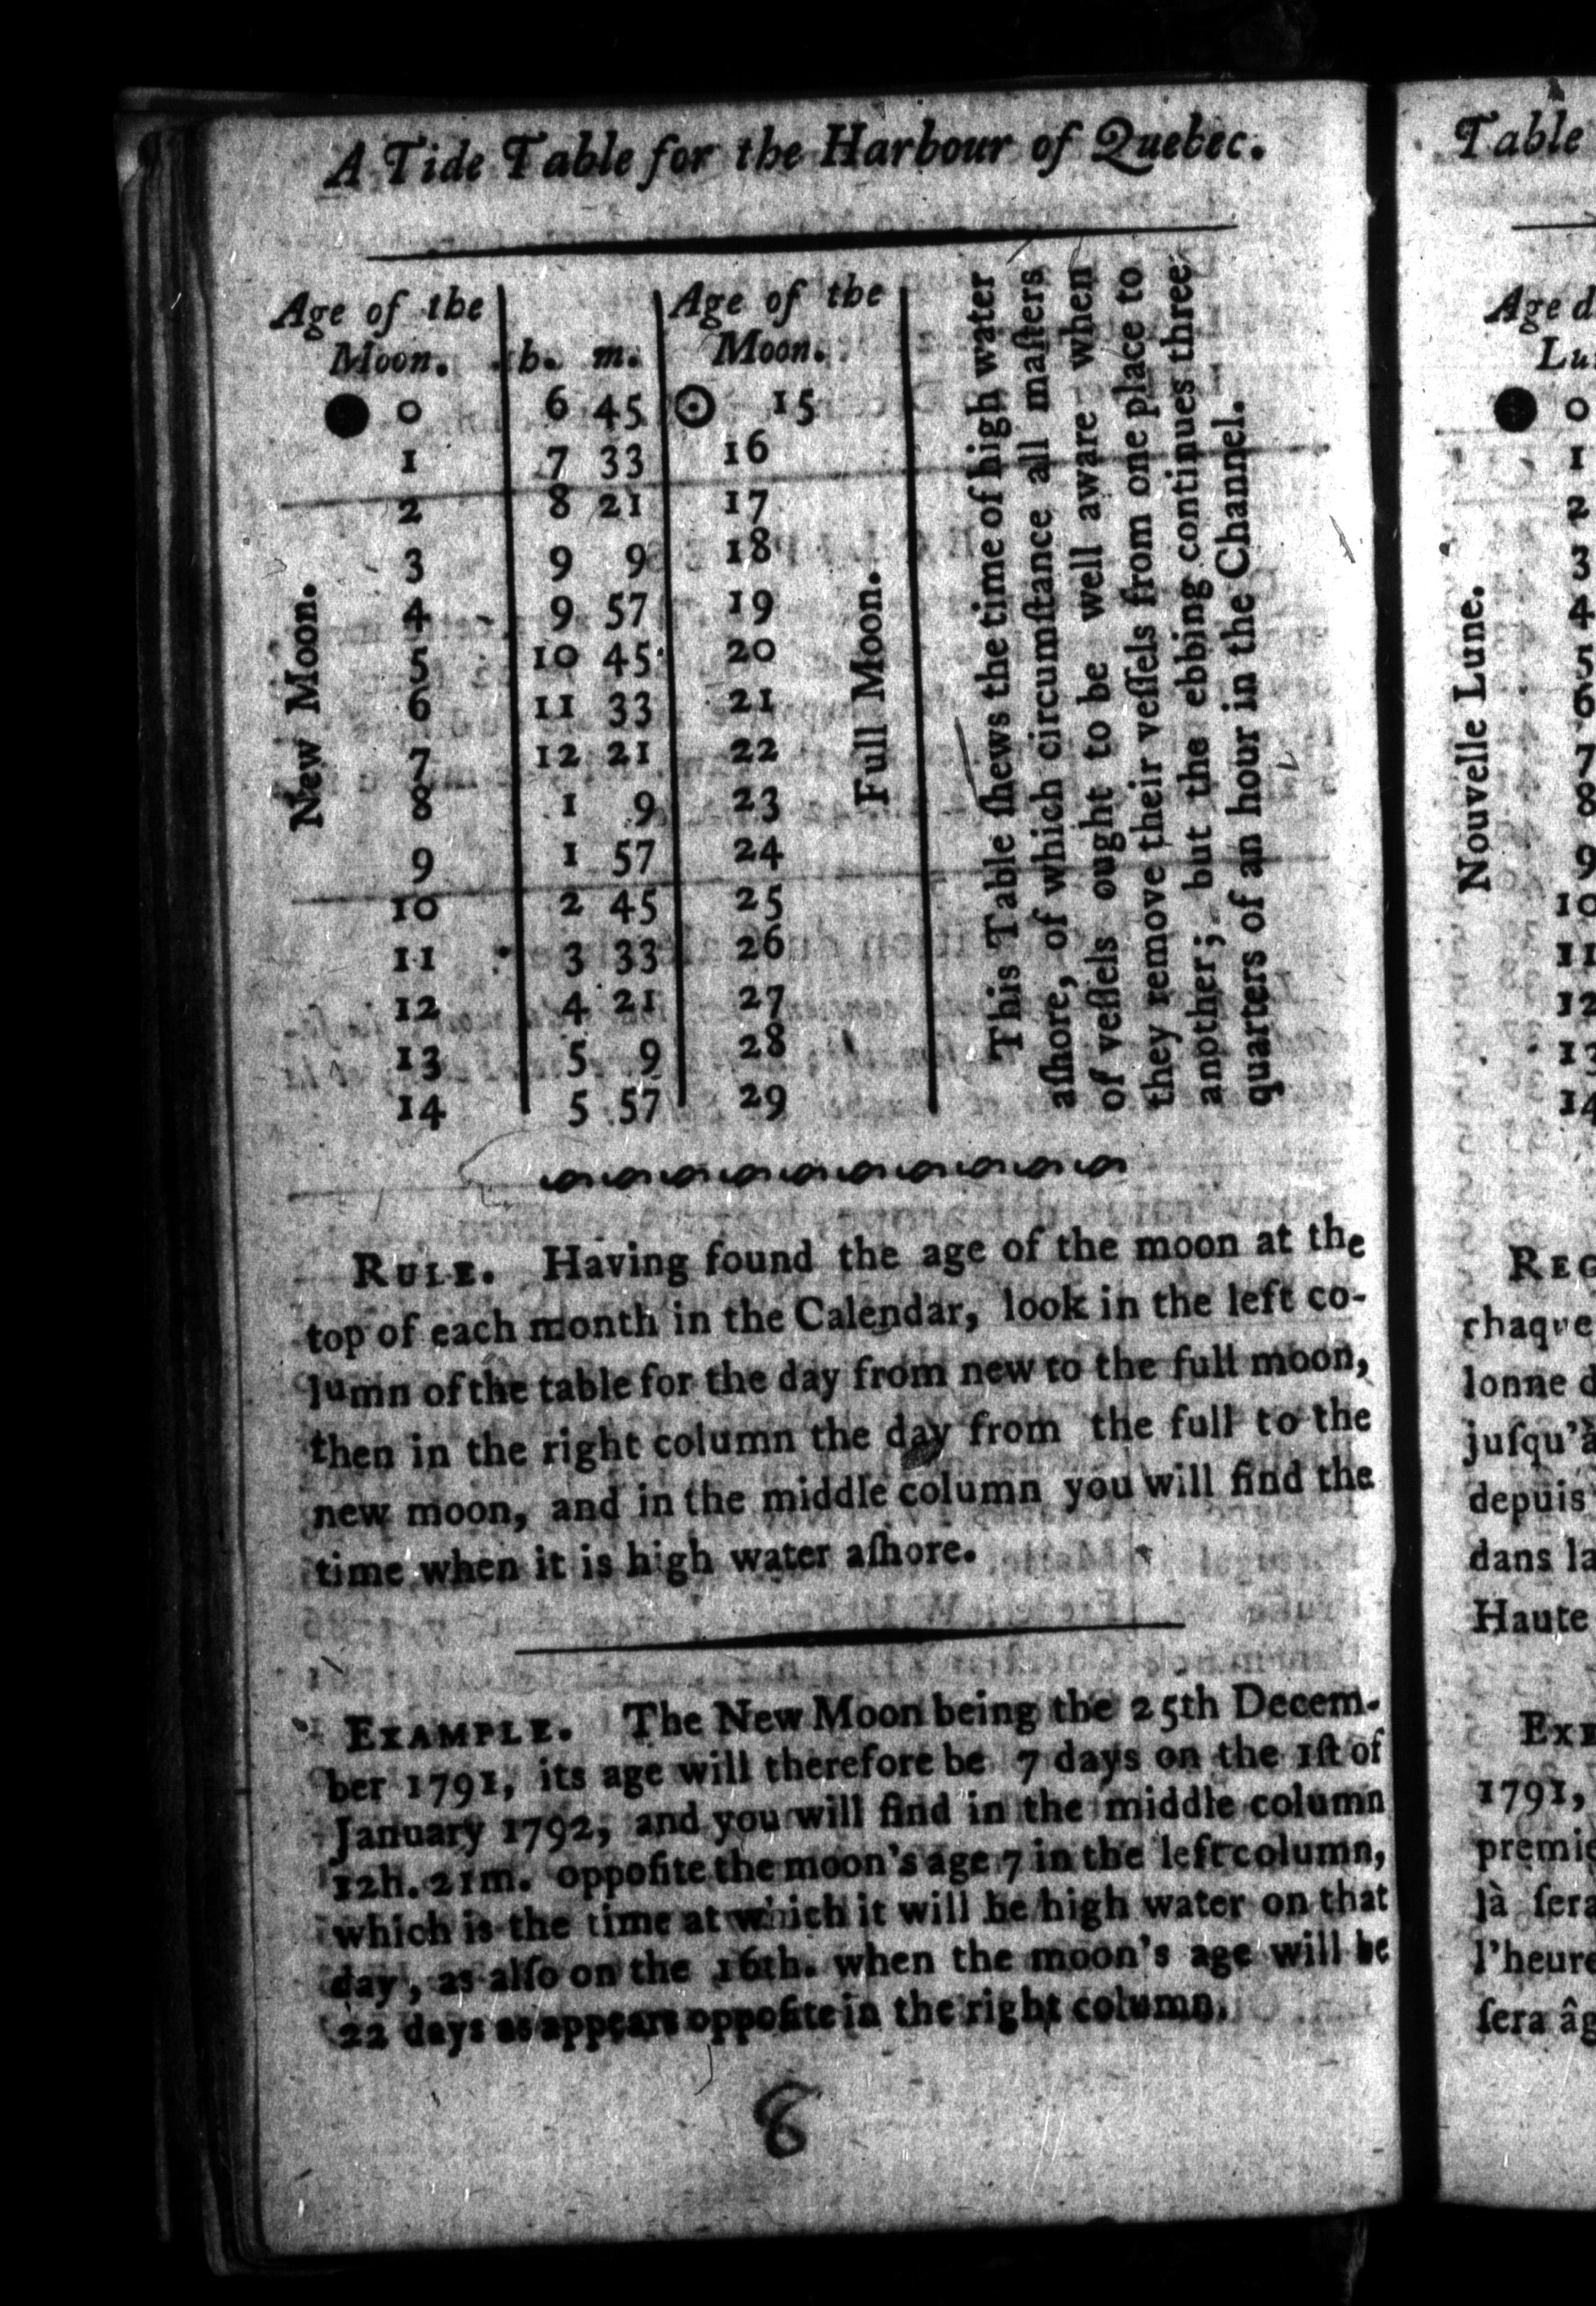 A Tide Table for the Harbour of Quebec.
Age of the Moon. h. m. Age of the Moon.
0 6 45 15
1 7 33 16
2 8 21 17
3 9 9 18
4 9 57 19
5 10 45 20
6 11 33 21
7 12 21 22
8 1 9 23
9 1 57 24
10 2 45 25
11 3 33 26
12 4 21 27
13 5 9 28
14 5 57 29
New Moon.
Full Moon.
This Table ſhews the time of high water
aſhore, of which circumſtance all maſters
of veſſels ought to be well aware when
they remove their veſſels from one place to
another; but the ebbing continues three
quarters of an hour in the Channel.
RULE. Having found the age of the moon at the
top of each month in the Calendar, look in the left co-
lumn of the table for the day from new to the full moon,
then in the right column the day from the full to the
new moon, and in the middle column you will find the
time when it is high water aſhore.
EXAMPLE. The New Moon being the 25th Decem-
ber 1791, its age will therefore be 7 days on the 1ſt of
January 1792, and you will find in the middle column
12h. 21m. oppoſite the moon's age 7 in the left column,
which is the time at which it will be high water on that
day, as alſo on the 16th. when the moon's age will be
22 days as appears oppoſite in the right column.
8
Table
Age d
Lu
0
1
2
3
4
5
6
7
8
9
10
11
12
13
14
Nouvelle Lune.
REG
chaque
lonne d
juſqu'à
depuis
dans la
Haute
EXE
1791,
premie
là ſera
l'heure
ſera âg